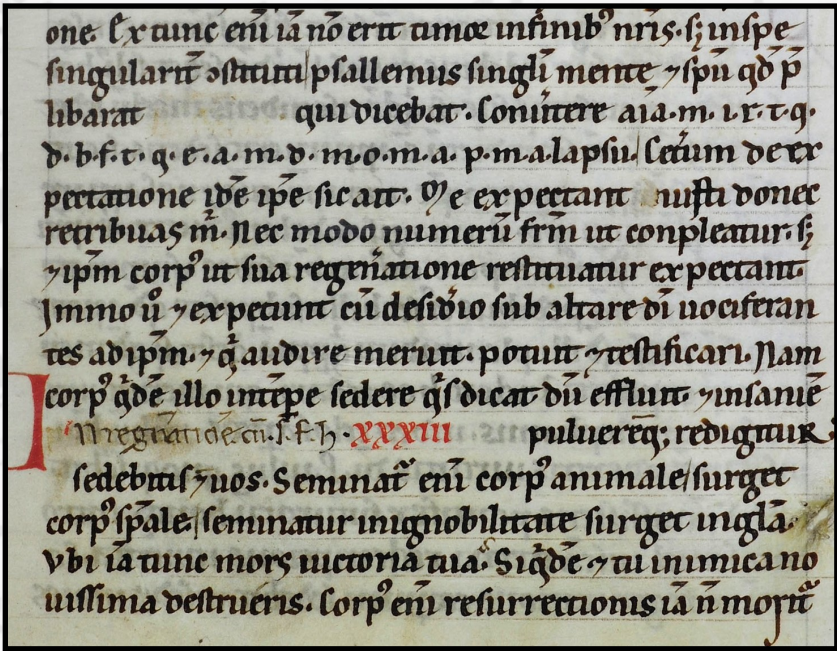 one. Ex tunc eni̅ ia̅ no̅ erit timor in finib⁹ nr̅is. sꝫ in spe
singularit̅ ɔstituti psallemus singl̅i mente ⁊ sp̅u qd̅ p̅
libarat qui dicebat. Conu̅tere ai̅a. m. i. r. t. q.
d. b. f. t. q. e. a. m. d. m. o. m. a. p. m. a lapsu. Cet̅um de ex
pectatione ide̅ ip̅e sic ait. Me expectant iusti donec
retribuas m̅. Nec modo numeru̅ fr̅m ut conpleatur. sꝫ
⁊ ip̅m corp⁹ ut sua regen̅atione restituatur expectant.
Immo u̅o ⁊ expetunt cu̅ desid̅io sub altare di̅ uociferan
tes ad ip̅m. ⁊ q̅ audire meruit. potuit ⁊ testificari. Nam
corp⁹ q̅de̅ illo inte̅pe sedere q̅s dicat du̅ effluit. ⁊ insanie̅
In regn̅atide. cu̅. s. f. h. xxxiii puluere̅qꝫ redigitur.
sedebitis ⁊ uos. Seminat̅ eni̅ corp⁹ animale surget
corp⁹ sp̅ale. seminatur in ignobilitate surget in gl̅a.
Vbi ia̅ tunc mors uictoria tua. Siq̅de̅ ⁊ tu inimica no
uissima destrueris. Corp⁹ eni̅ resurrectionis ia̅ n̅ morit̅